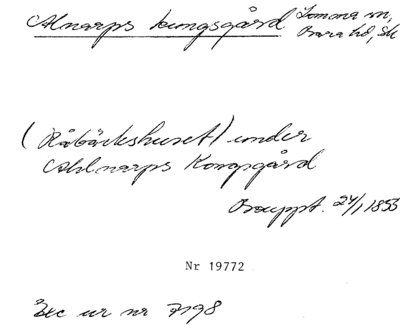 Alnarps kungsgård Lomma sn,
Bara hd, Sk
(Råbäckshuset) under
Ahlnarps Kongsgård
Bouppt. 24/1 1853
Nr 19772
Exc ur nr 7198